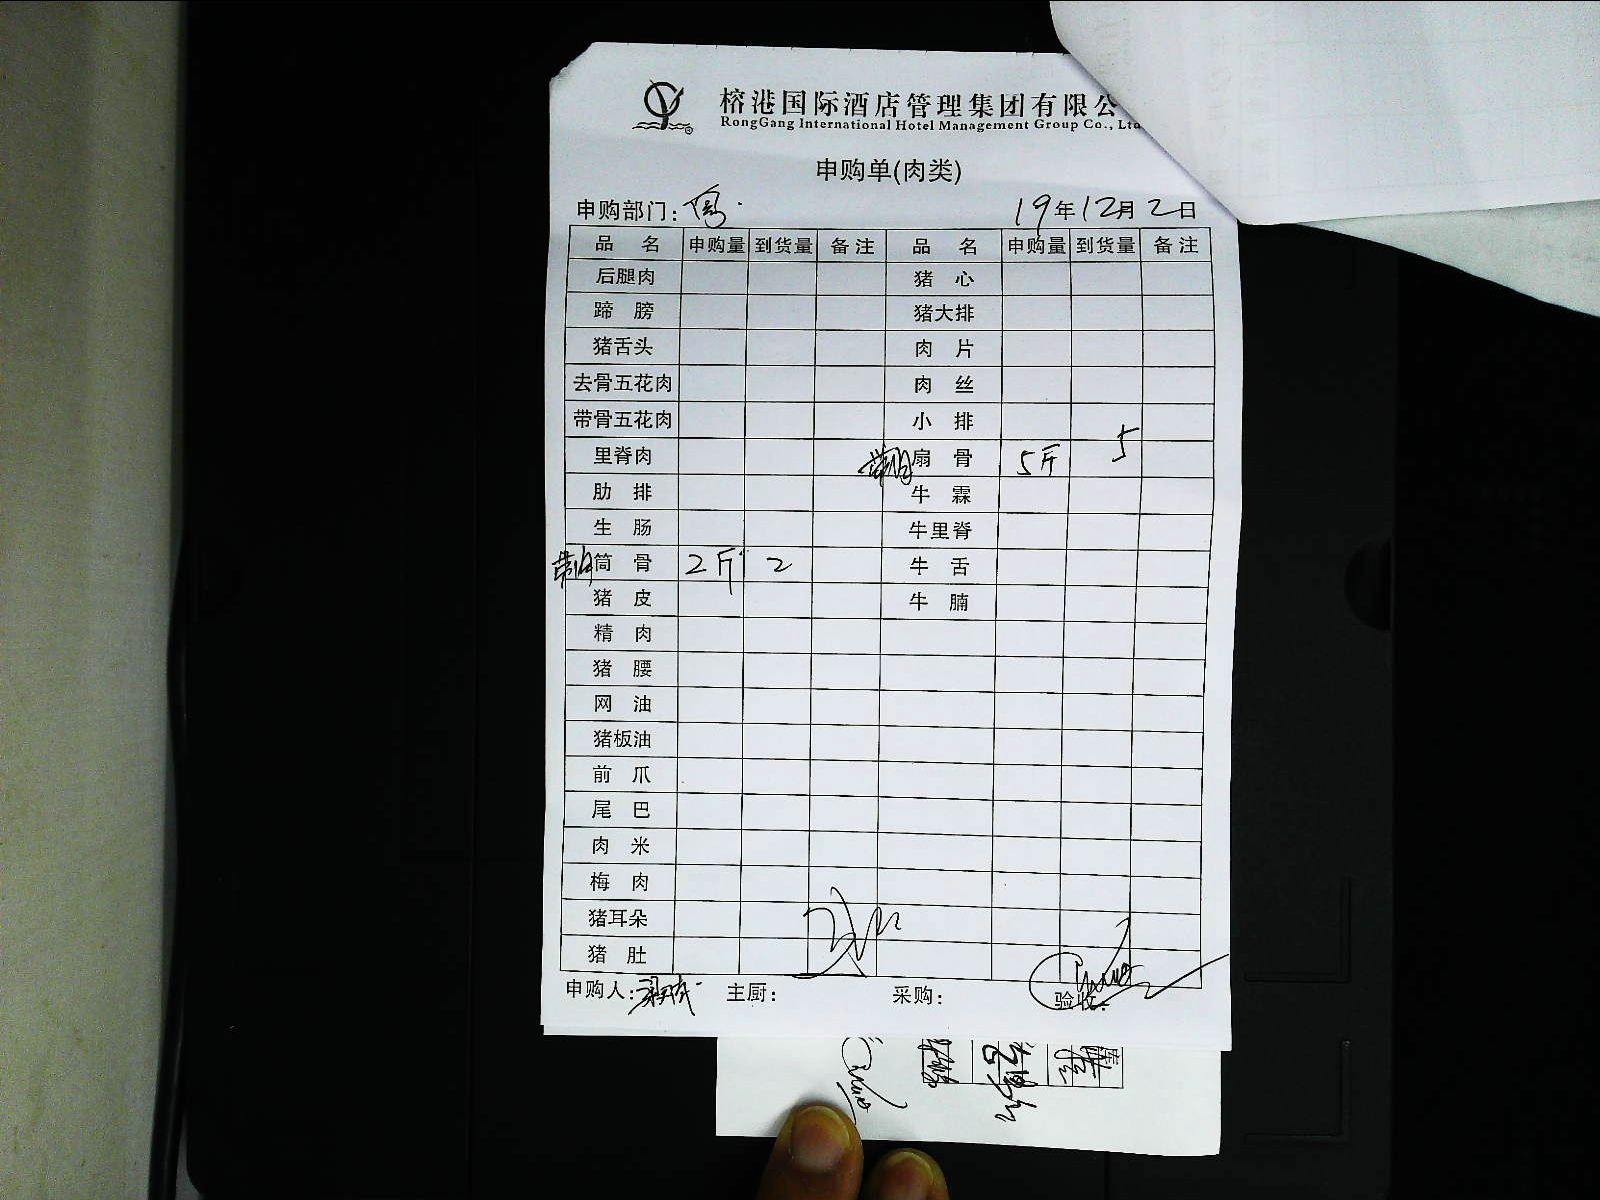 榕港国际酒店管理集团有限公
RongGang International Hotel Management Group Co., Ltd
申购单(肉类)
申购部门: 19年12月2日
品 名 申购量 到货量 备注 品 名 申购量 到货量 备注
后腿肉 猪 心
蹄 膀 猪大排
猪舌头 肉 片
去骨五花肉 肉 丝
带骨五花肉 小 排
里脊肉 带肉扇 骨 5斤 5
肋 排 牛 霖
生 肠 牛里脊
带肉筒 骨 2斤 2 牛 舌
猪 皮 牛 腩
精 肉
猪 腰
网 油
猪板油
前 爪
尾 巴
肉 米
梅 肉
猪耳朵
猪 肚
申购人: 主厨: 采购: 验收: